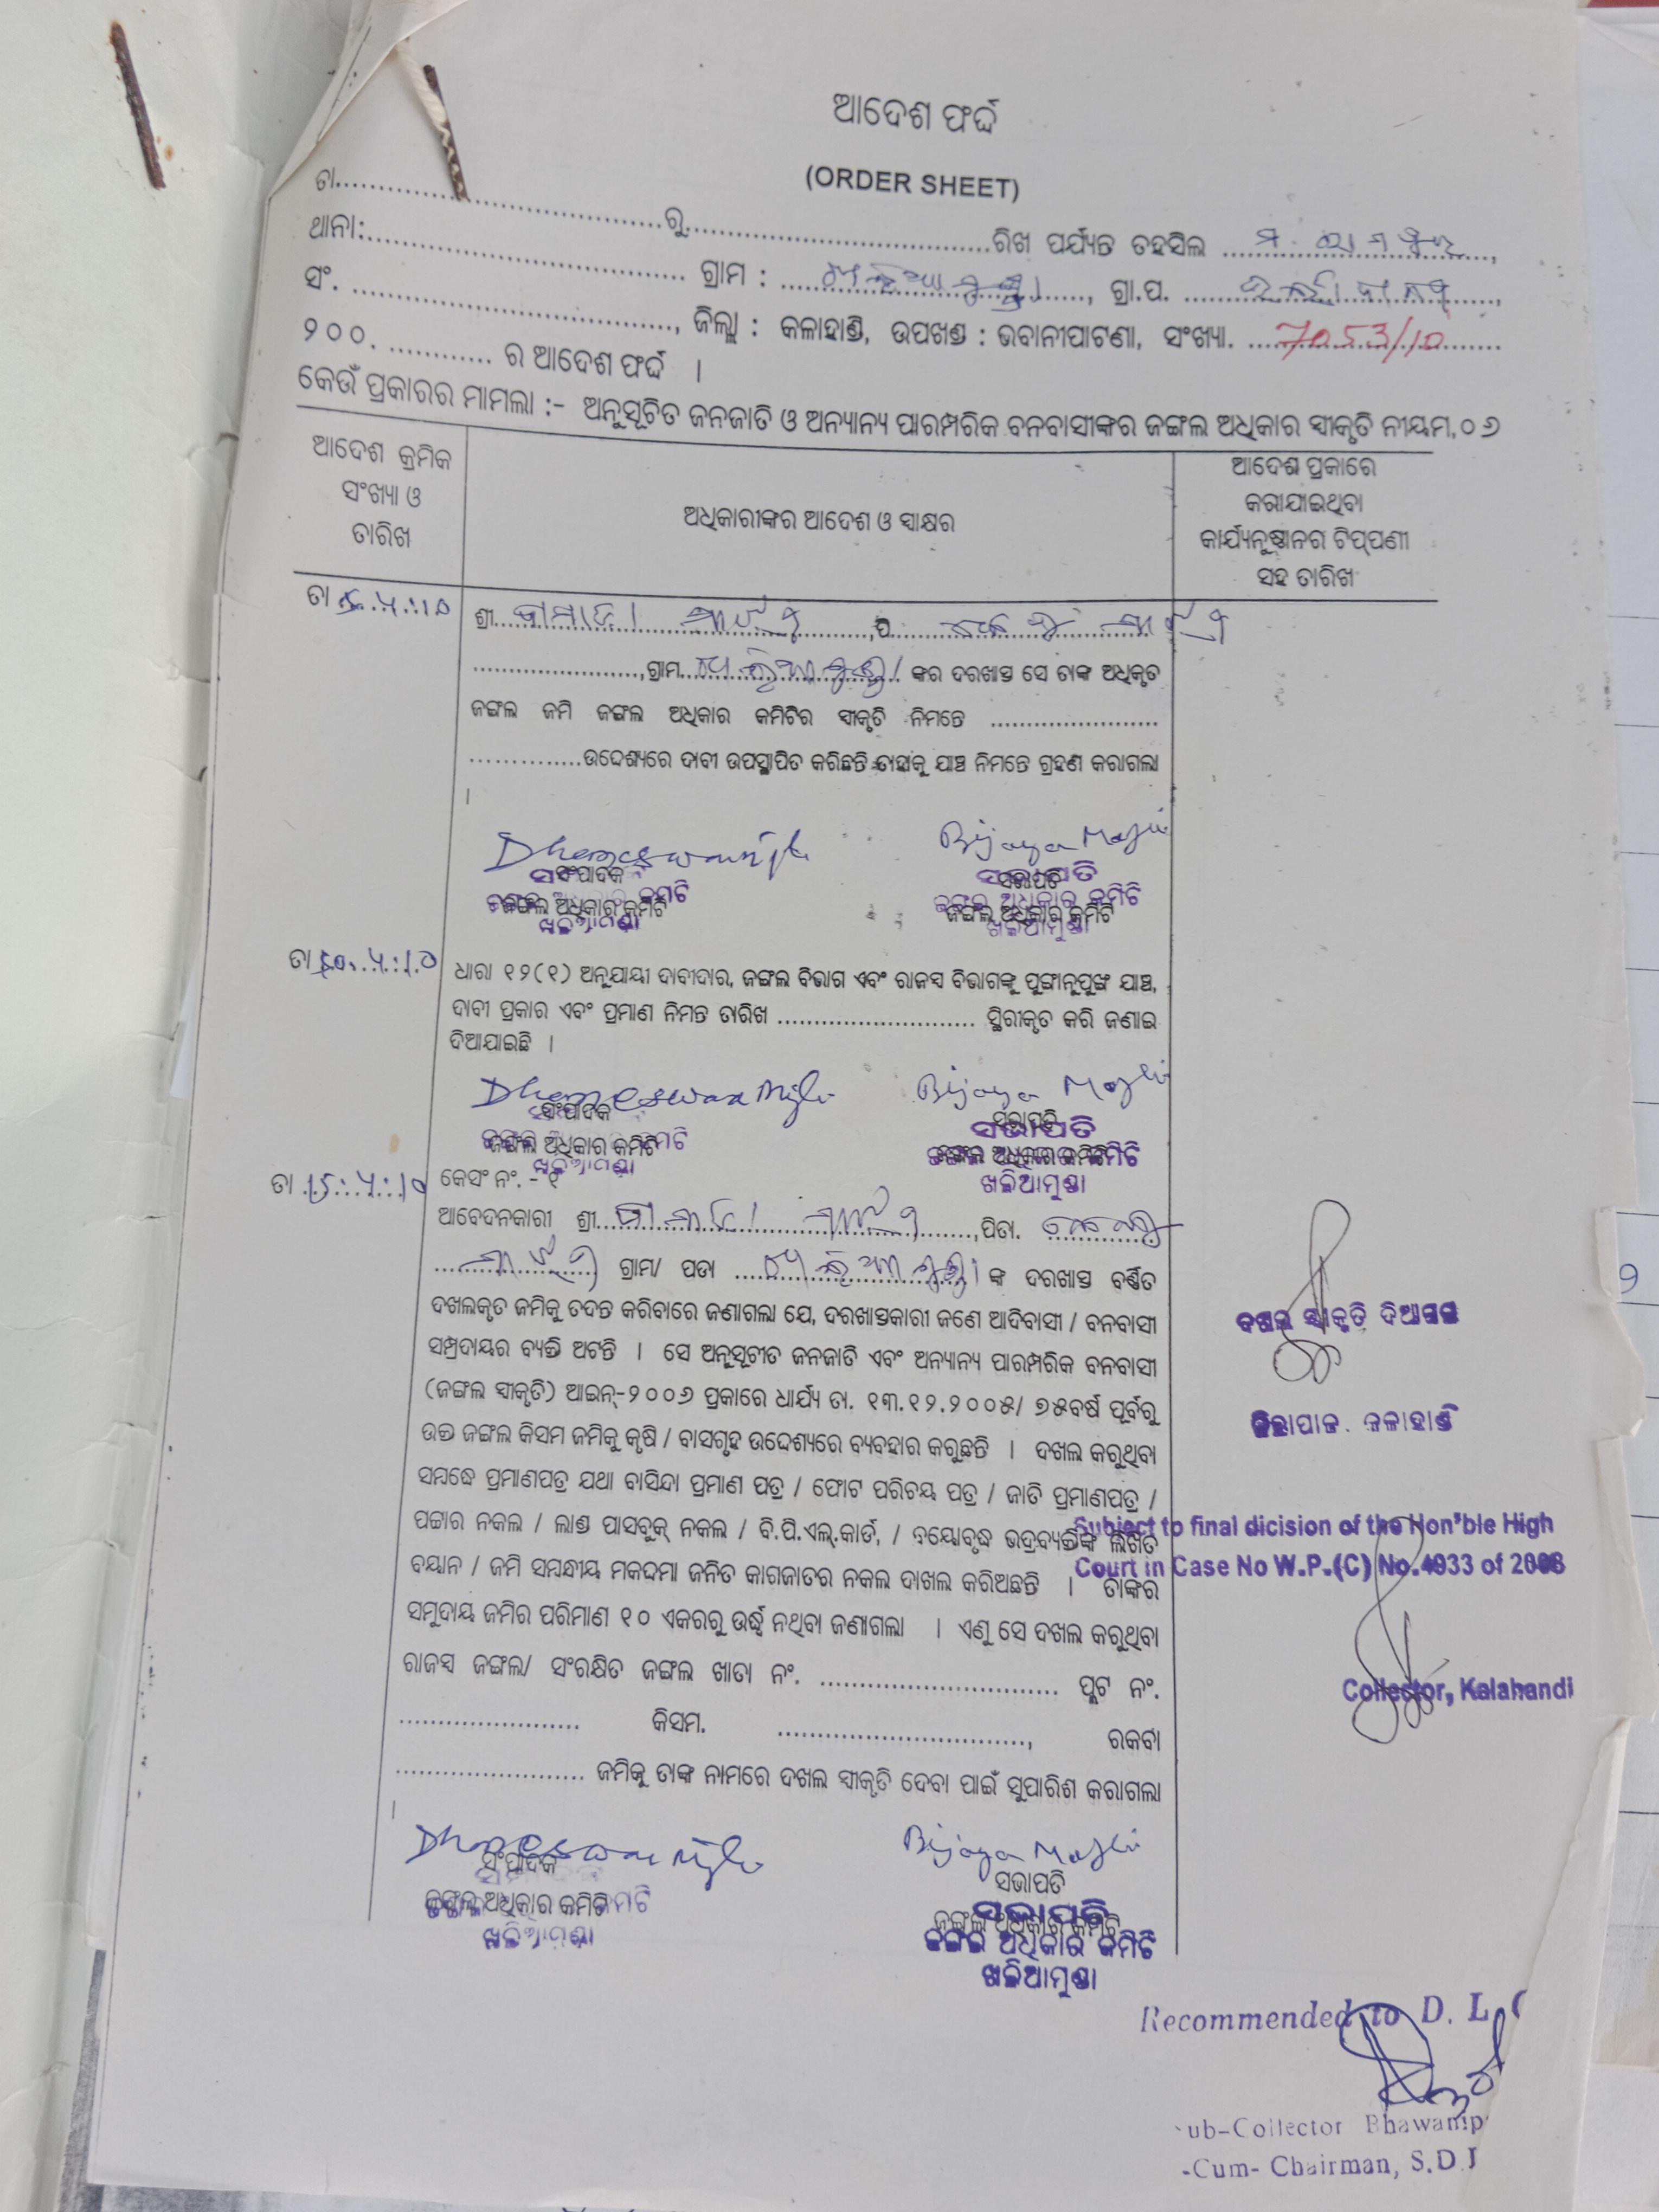 ଆଦେଶ ଫର୍ଦ୍ଦ
(ORDER SHEET)
ତା..............................ରୁ..............................ରିଖ ପର୍ଯ୍ୟନ୍ତ ତହସିଲ ..............................,
ଥାନା:.............................. ଗ୍ରାମ : .............................., ଗ୍ରା.ପ. ..............................,
ସଂ. .............................., ଜିଲ୍ଲା : କଳାହାଣ୍ଡି, ଉପଖଣ୍ଡ : ଭବାନୀପାଟଣା, ସଂଖ୍ୟା. 7053/10
୨୦୦. ............ ର ଆଦେଶ ଫର୍ଦ୍ଦ ।
କେଉଁ ପ୍ରକାରର ମାମଲା :- ଅନୁସୂଚିତ ଜନଜାତି ଓ ଅନ୍ୟାନ୍ୟ ପାରମ୍ପରିକ ବନବାସୀଙ୍କର ଜଙ୍ଗଲ ଅଧିକାର ସ୍ୱୀକୃତି ନୀୟମ,୦୬
ଆଦେଶ କ୍ରମିକ
ସଂଖ୍ୟା ଓ
ତାରିଖ
ଅଧିକାରୀଙ୍କର ଆଦେଶ ଓ ସ୍ୱାକ୍ଷର
ଆଦେଶ ପ୍ରକାରେ
କରାଯାଇଥିବା
କାର୍ଯ୍ୟାନୁଷ୍ଠାନର ଟିପ୍ପଣୀ
ସହ ତାରିଖ
ତା
ଶ୍ରୀ.............................., ପି..............................
......................, ଗ୍ରାମ.............................. ଙ୍କର ଦରଖାସ୍ତ ସେ ତାଙ୍କ ଅଧିକୃତ
ଜଙ୍ଗଲ ଜମି ଜଙ୍ଗଲ ଅଧିକାର କମିଟିର ସ୍ୱୀକୃତି ନିମନ୍ତେ ......................
...............ଉଦ୍ଦେଶ୍ୟରେ ଦାବୀ ଉପସ୍ଥାପିତ କରିଛନ୍ତି ତାହାକୁ ଯାଞ୍ଚ ନିମନ୍ତେ ଗ୍ରହଣ କରାଗଲା
।
Bijaya Majhi
ସଂପାଦକ ସଭାପତି
ଜଙ୍ଗଲ ଅଧିକାର କମିଟି ଜଙ୍ଗଲ ଅଧିକାର କମିଟି
ଖଳିଆମୁଣ୍ଡା ଖଳିଆମୁଣ୍ଡା
ତା
ଧାରା ୧୨(୧) ଅନୁଯାୟୀ ଦାବୀଦାର, ଜଙ୍ଗଲ ବିଭାଗ ଏବଂ ରାଜସ୍ୱ ବିଭାଗଙ୍କୁ ପୁଙ୍ଖାନୁପୁଙ୍ଖ ଯାଞ୍ଚ,
ଦାବୀ ପ୍ରକାର ଏବଂ ପ୍ରମାଣ ନିମନ୍ତ ତାରିଖ ........................... ସ୍ଥିରୀକୃତ କରି ଜଣାଇ
ଦିଆଯାଇଛି ।
Dhaneswar Majhi Bijaya Majhi
ସଂପାଦକ ସଭାପତି
ଜଙ୍ଗଲ ଅଧିକାର କମିଟି ଜଙ୍ଗଲ ଅଧିକାର କମିଟି
ଖଳିଆମୁଣ୍ଡା ଖଳିଆମୁଣ୍ଡା
ତା 15.4.10
କେସଂ ନଂ. - ୧
ଆବେଦନକାରୀ ଶ୍ରୀ.............................., ପିତା. ...............
...................... ଗ୍ରାମ/ ପଡା .............................. ଙ୍କ ଦରଖାସ୍ତ ବର୍ଣ୍ଣିତ
ଦଖଲକୃତ ଜମିକୁ ତଦନ୍ତ କରିବାରେ ଜଣାଗଲା ଯେ, ଦରଖାସ୍ତକାରୀ ଜଣେ ଆଦିବାସୀ / ବନବାସୀ
ସମ୍ପ୍ରଦାୟର ବ୍ୟକ୍ତି ଅଟନ୍ତି । ସେ ଅନୁସୂଚୀତ ଜନଜାତି ଏବଂ ଅନ୍ୟାନ୍ୟ ପାରମ୍ପରିକ ବନବାସୀ
(ଜଙ୍ଗଲ ସ୍ୱୀକୃତି) ଆଇନ୍-୨୦୦୬ ପ୍ରକାରେ ଧାର୍ଯ୍ୟ ତା. ୧୩.୧୨.୨୦୦୫/ ୭୫ବର୍ଷ ପୂର୍ବରୁ
ଉକ୍ତ ଜଙ୍ଗଲ କିସମ ଜମିକୁ କୃଷି / ବାସଗୃହ ଉଦ୍ଦେଶ୍ୟରେ ବ୍ୟବହାର କରୁଛନ୍ତି । ଦଖଲ କରୁଥିବା
ସମ୍ବନ୍ଧେ ପ୍ରମାଣପତ୍ର ଯଥା ବାସିନ୍ଦା ପ୍ରମାଣ ପତ୍ର / ଫୋଟ ପରିଚୟ ପତ୍ର / ଜାତି ପ୍ରମାଣପତ୍ର /
ପଟ୍ଟାର ନକଲ / ଲାଣ୍ଡ ପାସବୁକ୍ ନକଲ / ବି.ପି.ଏଲ୍.କାର୍ଡ, / ବୟୋବୃଦ୍ଧ ଭଦ୍ରବ୍ୟକ୍ତିଙ୍କ ଲିଖିତ
ବୟାନ / ଜମି ସମ୍ବନ୍ଧୀୟ ମକଦ୍ଦମା ଜନିତ କାଗଜାତର ନକଲ ଦାଖଲ କରିଅଛନ୍ତି । ତାଙ୍କର
ସମୁଦାୟ ଜମିର ପରିମାଣ ୧୦ ଏକରରୁ ଉର୍ଦ୍ଧ୍ୱ ନଥିବା ଜଣାଗଲା । ଏଣୁ ସେ ଦଖଲ କରୁଥିବା
ରାଜସ୍ୱ ଜଙ୍ଗଲ/ ସଂରକ୍ଷିତ ଜଙ୍ଗଲ ଖାତା ନଂ. .............................. ପ୍ଲଟ ନଂ.
...................... କିସମ. .............................., ରକବା
........................ ଜମିକୁ ତାଙ୍କ ନାମରେ ଦଖଲ ସ୍ୱୀକୃତି ଦେବା ପାଇଁ ସୁପାରିଶ କରାଗଲା
।
ଦଖଲ ସ୍ୱୀକୃତି ଦିଆଗଲା
ଜିଲ୍ଲାପାଳ. କଳାହାଣ୍ଡି
Subject to final dicision of the Hon'ble High
Court in Case No W.P.(C) No.4933 of 2008
Collector, Kalahandi
Bijaya Majhi
ସଂପାଦକ ସଭାପତି
ଜଙ୍ଗଲ ଅଧିକାର କମିଟି ଜଙ୍ଗଲ ଅଧିକାର କମିଟି
ଖଳିଆମୁଣ୍ଡା ଖଳିଆମୁଣ୍ଡା
Recommended to D. L.
ub-Collector Bhawanip
-Cum- Chairman, S.D.